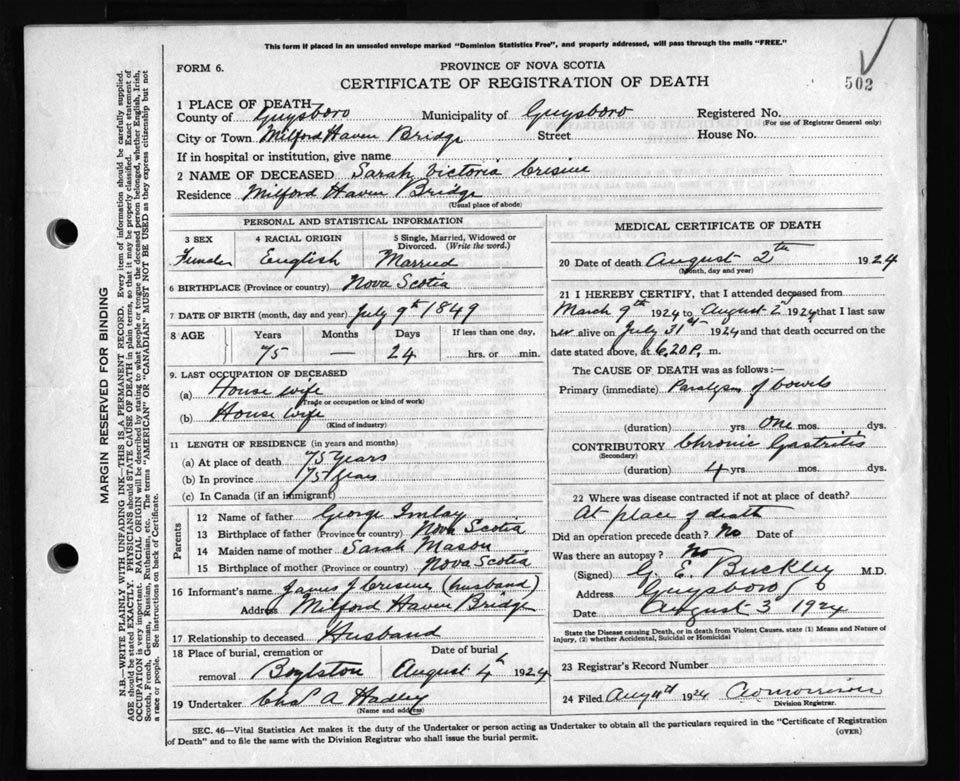 This form if placed in an unsealed envelope marked "Dominion Statistics Free", and properly addressed, will pass through the mails "FREE."
FORM 6.
PROVINCE OF NOVA SCOTIA
CERTIFICATE OF REGISTRATION OF DEATH
502
1 PLACE OF DEATH—
County of Guysboro Municipality of Guysboro Registered No.
(For use of Registrar General only)
City or Town Milford Haven Bridge Street House No.
If in hospital or institution, give name
2 NAME OF DECEASED Sarah Victoria Crisine
Residence Milford Haven Bridge
(Usual place of abode)
PERSONAL AND STATISTICAL INFORMATION
3 SEX Female
4 RACIAL ORIGIN English
5 Single, Married, Widowed or Divorced. (Write the word.) Married
6 BIRTHPLACE (Province or country) Nova Scotia
7 DATE OF BIRTH (month, day and year) July 9th 1849
8 AGE Years Months Days If less than one day,
75 — 24 hrs. or min.
9. LAST OCCUPATION OF DECEASED
(a) House wife
(Trade or occupation or kind of work)
(b) House wife
(Kind of industry)
11 LENGTH OF RESIDENCE (in years and months)
(a) At place of death 75 Years
(b) In province 75 Years
(c) In Canada (if an immigrant)
Parents
12 Name of father George Imlay
13 Birthplace of father (Province or country) Nova Scotia
14 Maiden name of mother Sarah Mason
15 Birthplace of mother (Province or country) Nova Scotia
16 Informant's name James J Crisine (husband)
Address Milford Haven Bridge
17 Relationship to deceased Husband
18 Place of burial, cremation or removal Boylston
Date of burial August 4th 1924
19 Undertaker Chas A Hadley
(Name and address)
MEDICAL CERTIFICATE OF DEATH
20 Date of death August 2th 1924
(Month, day and year)
21 I HEREBY CERTIFY, that I attended deceased from
March 9th 1924 to August 2 1924 that I last saw
her alive on July 31st 1924 and that death occurred on
date stated above, at 6.20 P. m.
The CAUSE OF DEATH was as follows:—
Primary (immediate) Paralysis of bowels
(duration) yrs one mos. dys.
CONTRIBUTORY Chronic Gastritis
(Secondary)
(duration) 4 yrs mos. dys.
22 Where was disease contracted if not at place of death?
At place of death
Did an operation precede death? No Date of
Was there an autopsy? No
(Signed) G. E. Buckley M.D.
Address Guysboro
Date August 3 1924
State the Disease causing Death, or in death from Violent Causes, state (1) Means and Nature of
Injury, (2) whether Accidental, Suicidal or Homicidal
23 Registrar's Record Number
24 Filed Aug 4th 1924
Division Registrar.
SEC. 46—Vital Statistics Act makes it the duty of the Undertaker or person acting as Undertaker to obtain all the particulars required in the "Certificate of Registration
of Death" and to file the same with the Division Registrar who shall issue the burial permit.
(OVER)
MARGIN RESERVED FOR BINDING
N.B.—WRITE PLAINLY WITH UNFADING INK—THIS IS A PERMANENT RECORD. Every item of information should be carefully supplied.
AGE should be stated EXACTLY. PHYSICIANS should STATE CAUSE OF DEATH in plain terms, so that it may be properly classified. Exact statement of
OCCUPATION is very important. RACIAL ORIGIN will be described by stating to what people or tongue the deceased person belonged, whether English, Irish,
Scotch, French, German, Russian, Ruthenian, etc. The terms "AMERICAN" OR "CANADIAN" MUST NOT BE USED as they express citizenship but not
a race or people. See instructions on back of Certificate.